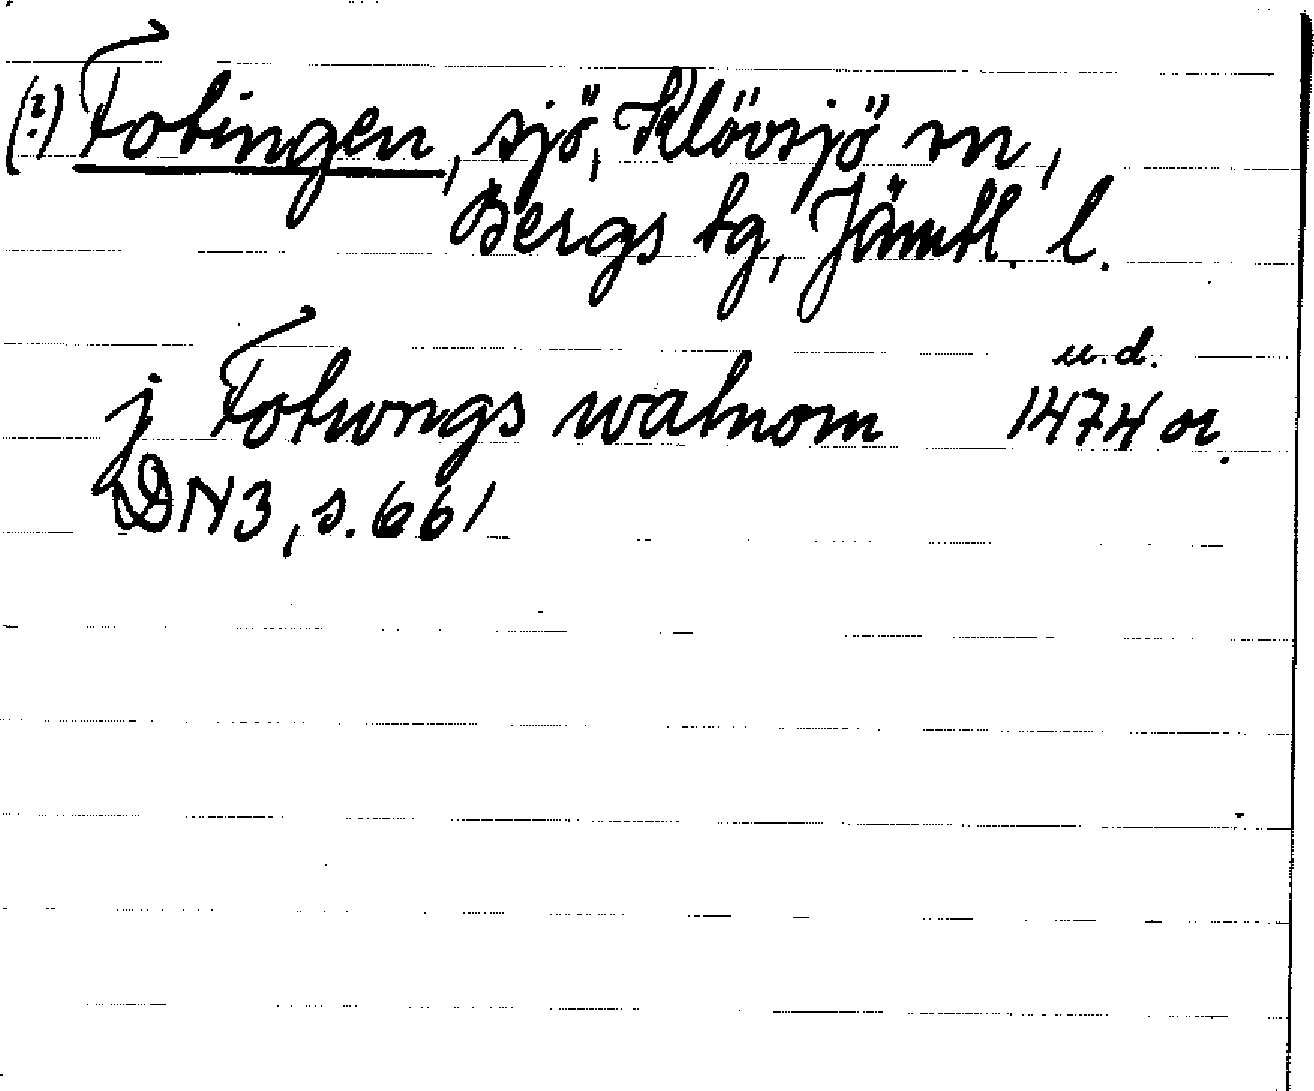 (?) Fotingen, sjö, Klövsjö sn,
Bergs tg, Jämtl. l.
u.d.
j Fotwngs watnom 1474 or.
DN 3, s. 661